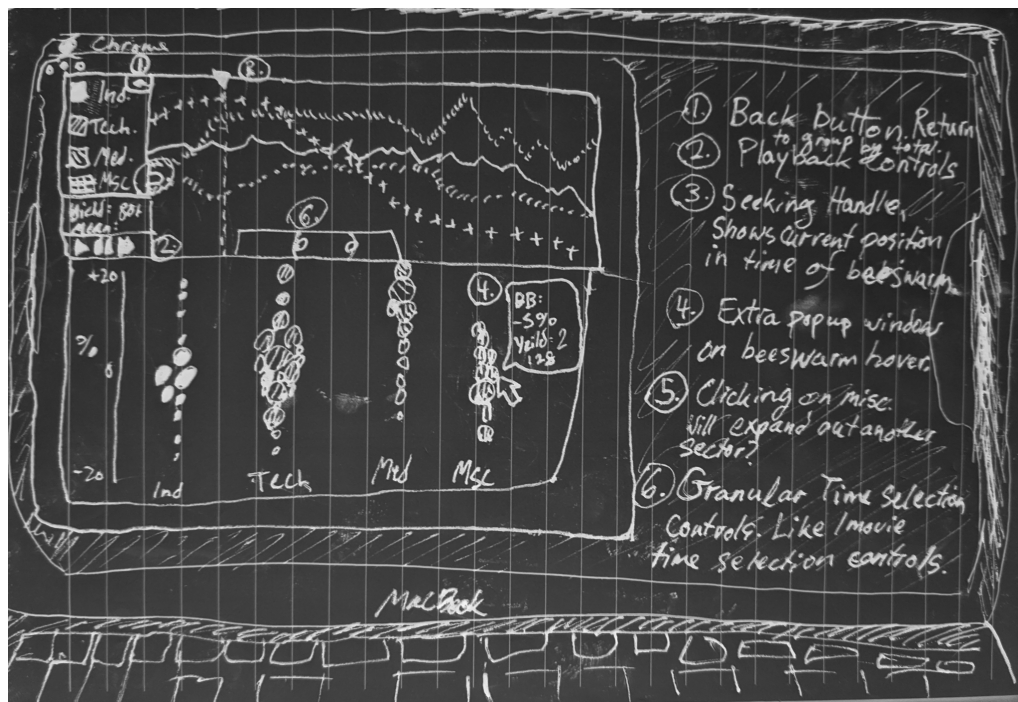 Chrome
1.
3.
Ind.
Tech.
Med.
Msc
5
Yield: 80%
mean:
2.
6.
+20
%
0
-20
4.
BB:
-5%
Yeild: 2
128
Ind
Tech
Med
Msc
1. Back button. Return
to group by total.
2. Playback Controls
3. Seeking Handler,
Shows current position
in time of beeswarm.
4. Extra popup window
on beeswarm hover.
5. Clicking on misc.
Will expand out another
sector?
6. Granular Time Selection
Controls. Like Imovie
time selection controls.
MacBook